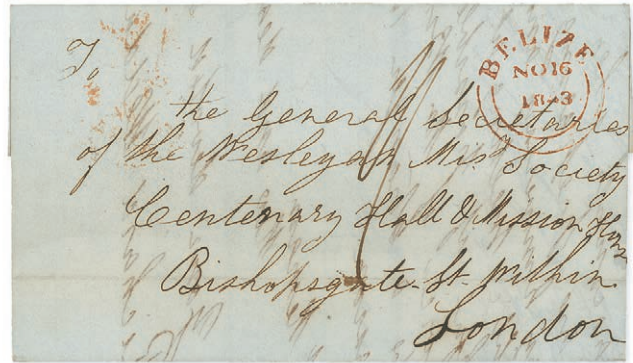 To
BELIZE
NO 16
1843
the General Secretaries
of the Wesleyan Misy Society
Centenary Hall & Mission House
Bishopsgate St. Within
London